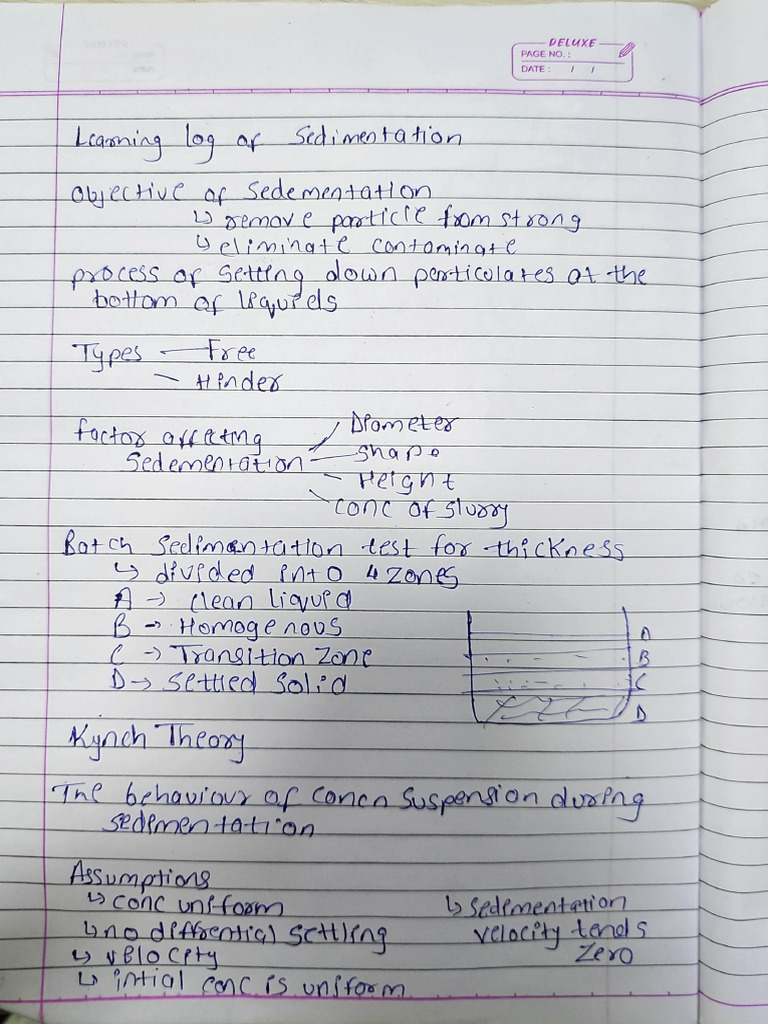 DELUXE
PAGE NO. :
DATE : / /
Learning log of Sedimentation
Objective of Sedementation
↳ remove particle from strong
↳ eliminate contaminate
process of Setting down particulates at the
bottom of liquids
Types — Free
— Hinder
factor affecting
Sedementation
Diameter
Shape
Height
conc of slurry
Batch Sedimentation test for thickness
↳ divided into 4 zones
A → clean liquid
B → Homogenous
C → Transition Zone
D → Settled Solid
A
B
C
D
Kynch Theory
The behaviour of concn suspension during
sedimentation
Assumptions
↳ conc uniform
↳ no diffrential settling
↳ velocity
↳ intial conc is uniform
↳ sedimentation
velocity tends
Zero